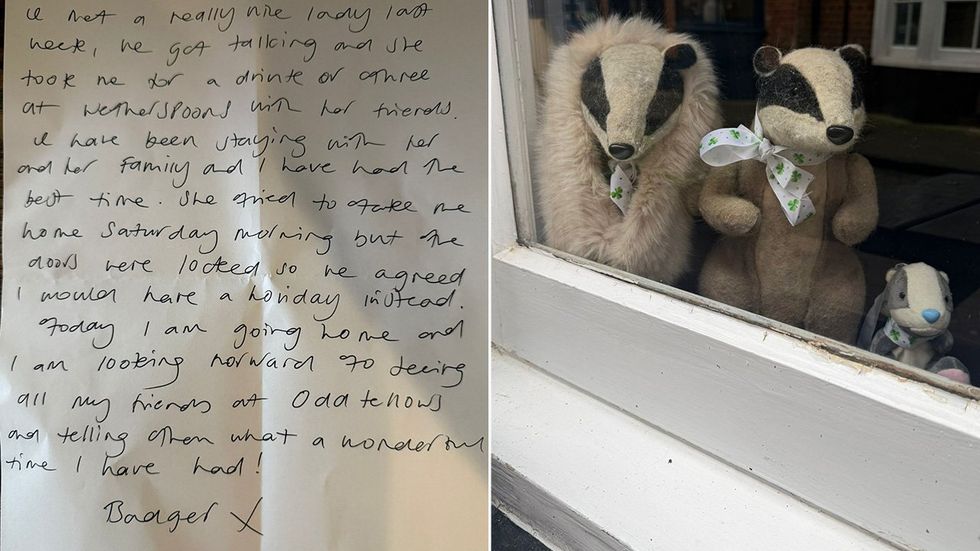 I met a really nice lady last
week, we got talking and she
took me for a drink or three
at Wetherspoons with her friends.
I have been staying with her
and her family and I have had the
best time. She tried to take me
home Saturday morning but the
doors were locked so we agreed
I would have a holiday instead.
Today I am going home and
I am looking forward to seeing
all my friends at Oddfellows
and telling them what a wonderful
time I have had!
Badger X